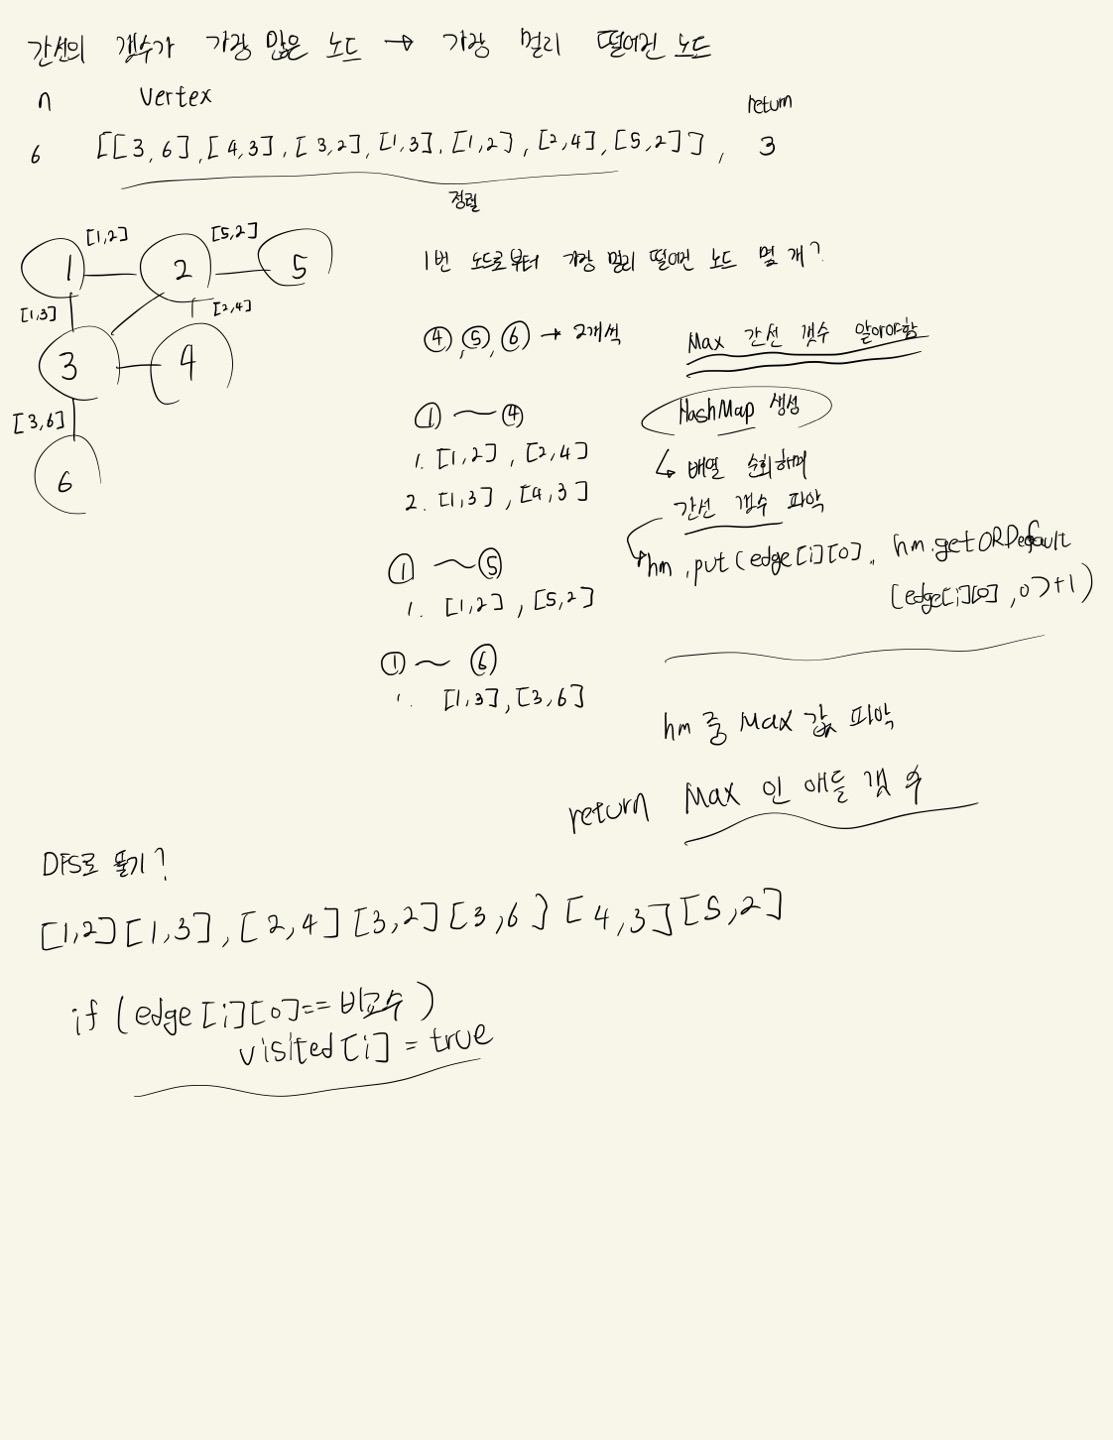 간선의 갯수가 가장 많은 노드 → 가장 멀리 떨어진 노드
n Vertex return
6 [[3,6],[4,3],[3,2],[1,3],[1,2],[2,4],[5,2]], 3
정렬
[1,2] [5,2]
1 2 5
1번 노드로부터 가장 멀리 떨어진 노드 몇 개?
[1,3] [2,4]
3 4
[3,6]
6
④,⑤,⑥ → 2개씩
① ~ ④
1. [1,2], [2,4]
2. [1,3], [4,3]
① ~ ⑤
1. [1,2], [5,2]
① ~ ⑥
1. [1,3], [3,6]
Max 간선 갯수 알아야함
HashMap 생성
↳ 배열 순회하며
간선 갯수 파악
hm.put(edge[i][0], hm.getORDefault
(edge[i][0], 0)+1)
hm 중 Max 값 파악
return Max 인 애들 갯수
DFS로 풀기?
[1,2][1,3],[2,4][3,2][3,6][4,3][5,2]
if (edge[i][0]== 비교수)
visited[i] = true